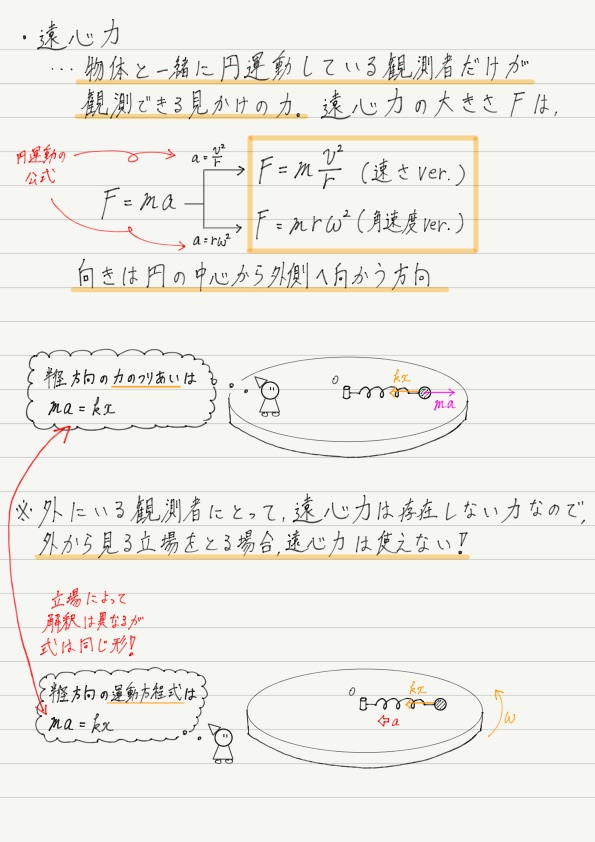 ・遠心力
… 物体と一緒に円運動している観測者だけが
観測できる見かけの力。遠心力の大きさ F は,
円運動の
公式
a = v²/r
F = ma
a = rω²
F = m v²/r (速さ ver.)
F = mrω² (角速度 ver.)
向きは円の中心から外側へ向かう方向
半径方向の力のつりあいは
ma = kx
O
kx
ma
※ 外にいる観測者にとって, 遠心力は存在しない力なので,
外から見る立場をとる場合, 遠心力は使えない!
立場によって
解釈は異なるが
式は同じ形!
半径方向の運動方程式は
ma = kx
O
kx
⇦a
ω